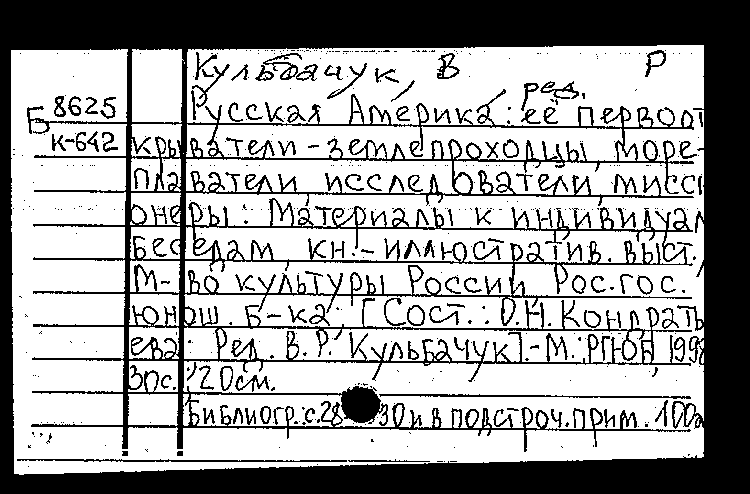 Кульбачук, В Р
ред.
Б 8625 Русская Америка: её первот
К-642 крыватели-землепроходцы, море-
плаватели, исследователи, мисси
онеры: Материалы к индивидуал
беседам, кн.-иллюстратив. выст.,
М-во культуры России, Рос.гос.
юнош. б-ка; [Сост.: О.Н. Кондрать
ева: Ред. В.Р. Кульбачук].-М.: РГЮБ, 1998
30с.; 20см.
Библиогр.: с.28 30 и в подстроч.прим. 100э